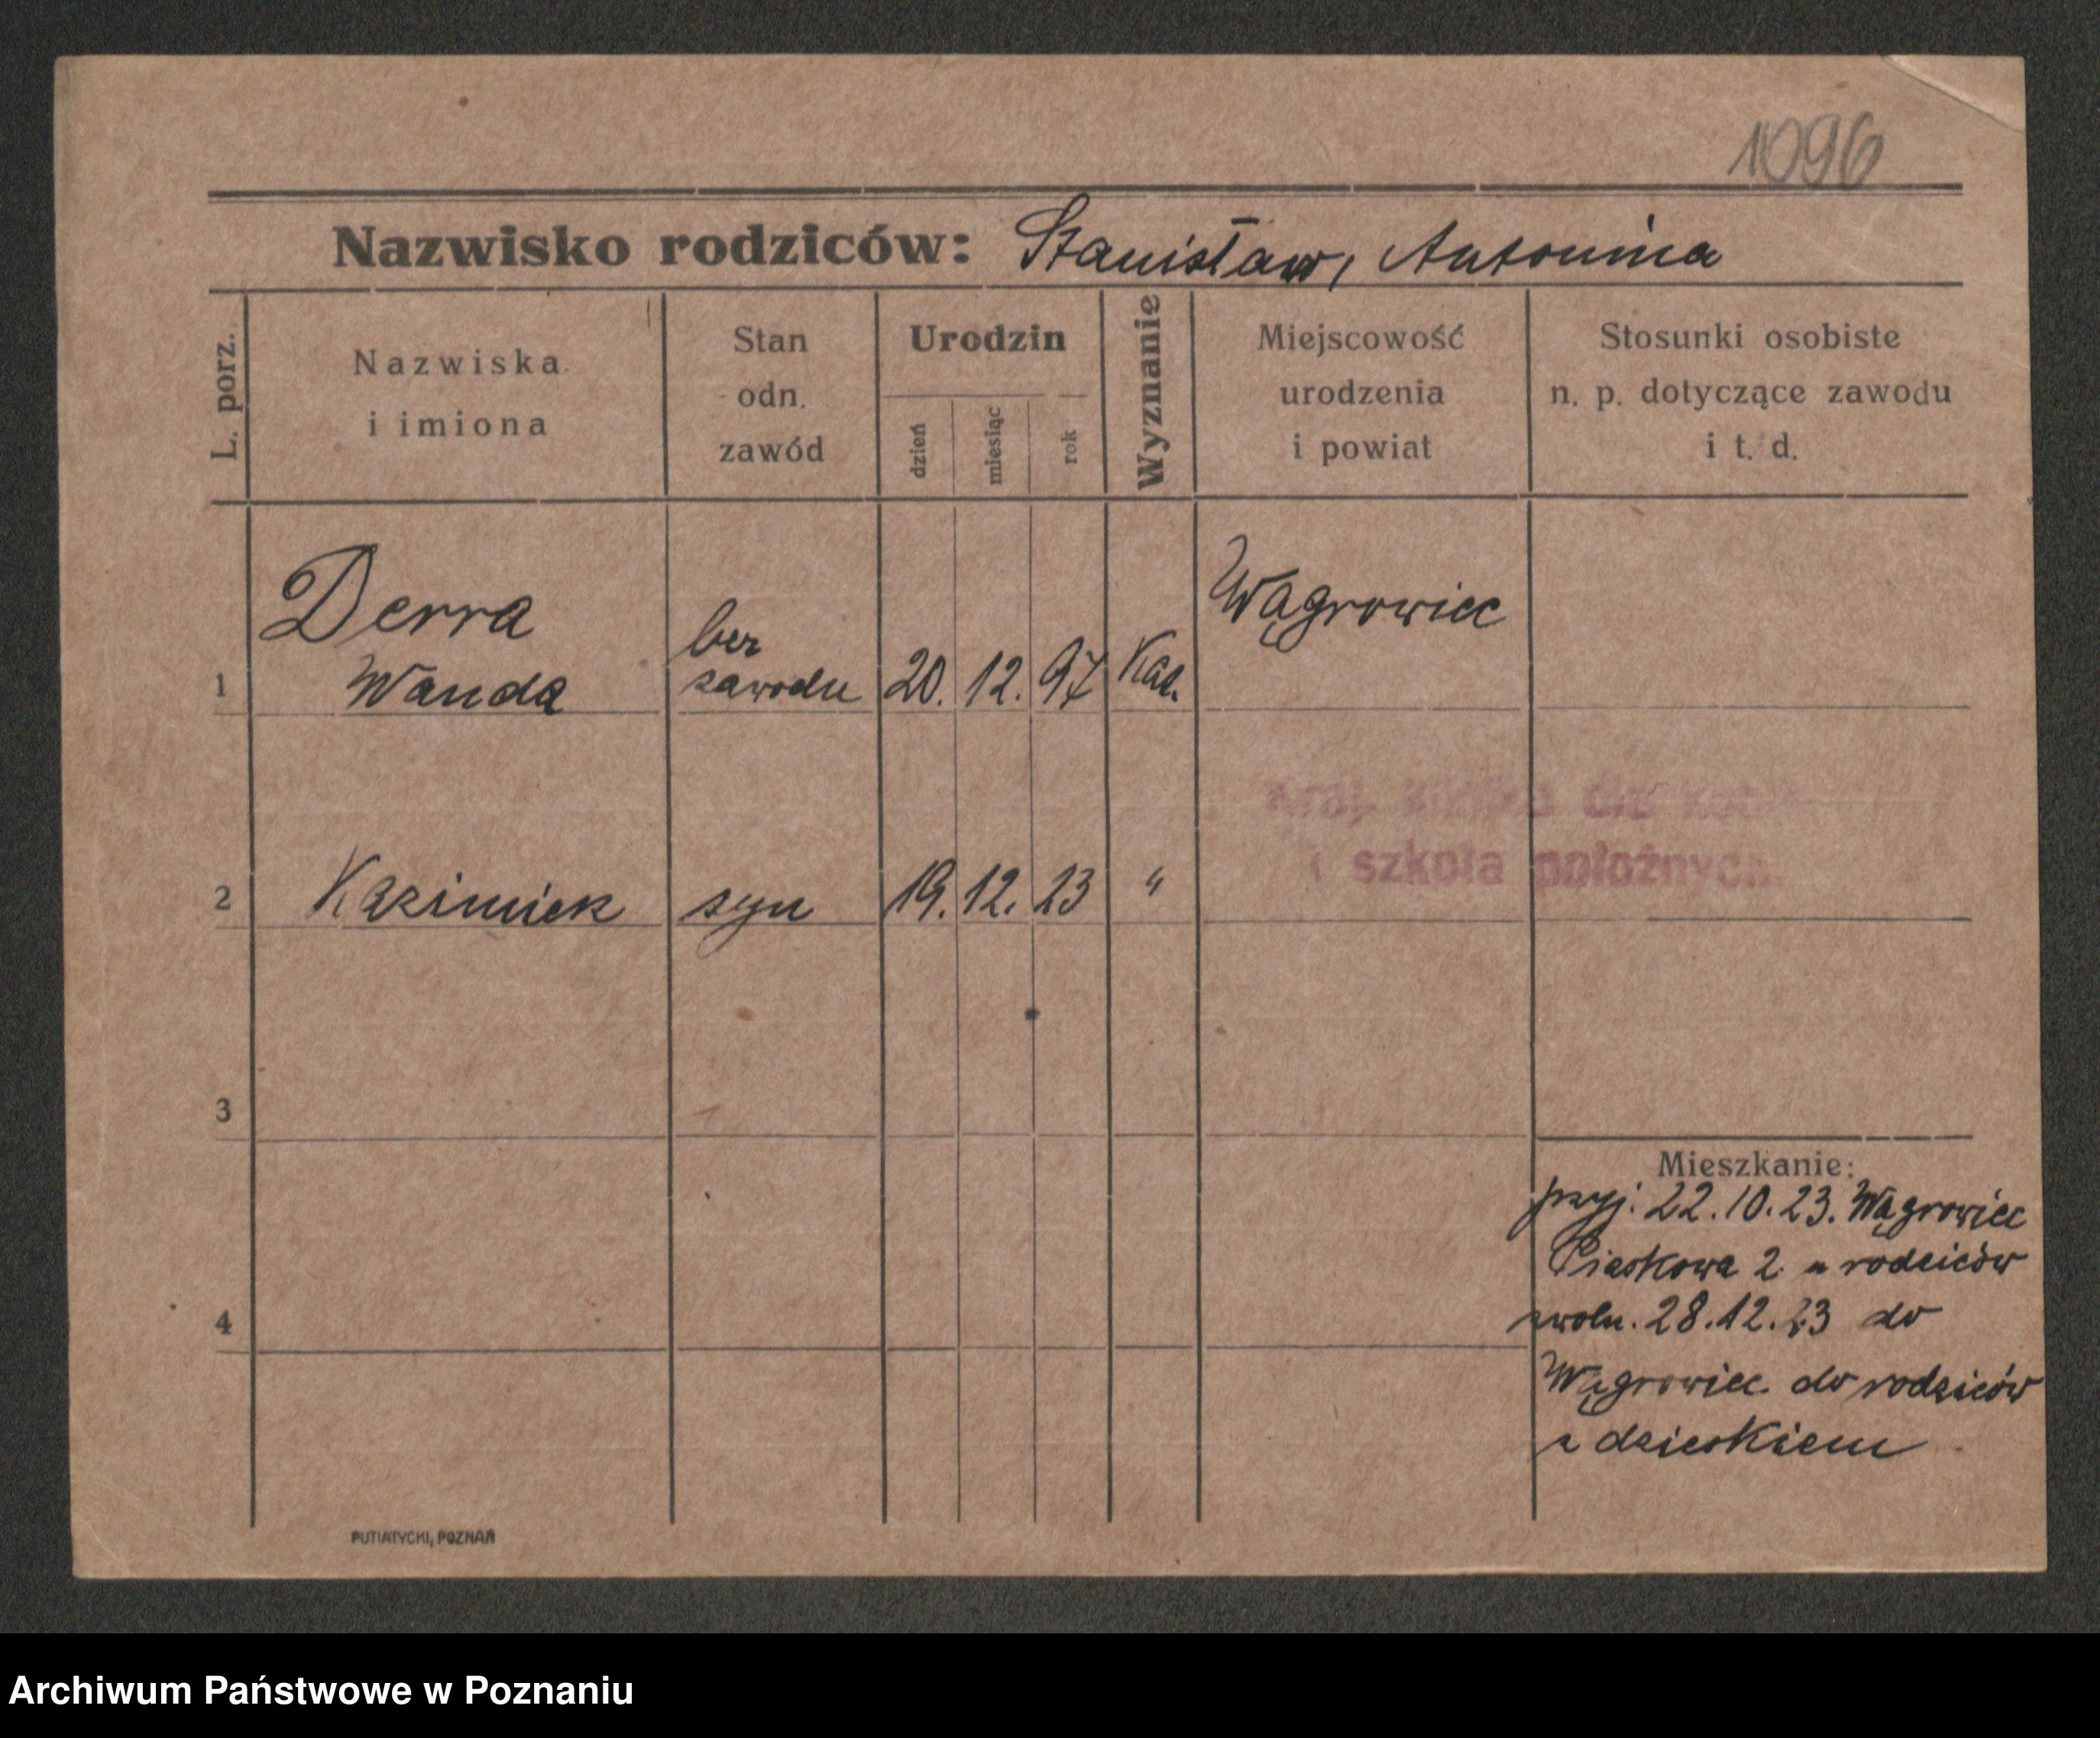 1096
Nazwisko rodziców: Stanisław, Antonina
L. porz.
Nazwiska
i imiona
Stan
odn.
zawód
Urodzin
dzień
miesiąc
rok
Wyznanie
Miejscowość
urodzenia
i powiat
Stosunki osobiste
n. p. dotyczące zawodu
i t. d.
1
Derra
Wanda
bez
zawodu
20. 12. 97
Kat.
Wągrowiec
Kraj. klinika dla kobiet
i szkoła położnych
2
Kazimierz
syn
19. 12. 23
"
3
4
Mieszkanie:
przyj. 22.10.23. Wągrowiec
Piaskowa 2 u rodziców
zwoln. 28.12.23 do
Wągrowiec do rodziców
z dzieckiem
PUTIATYCKI, POZNAŃ
Archiwum Państwowe w Poznaniu